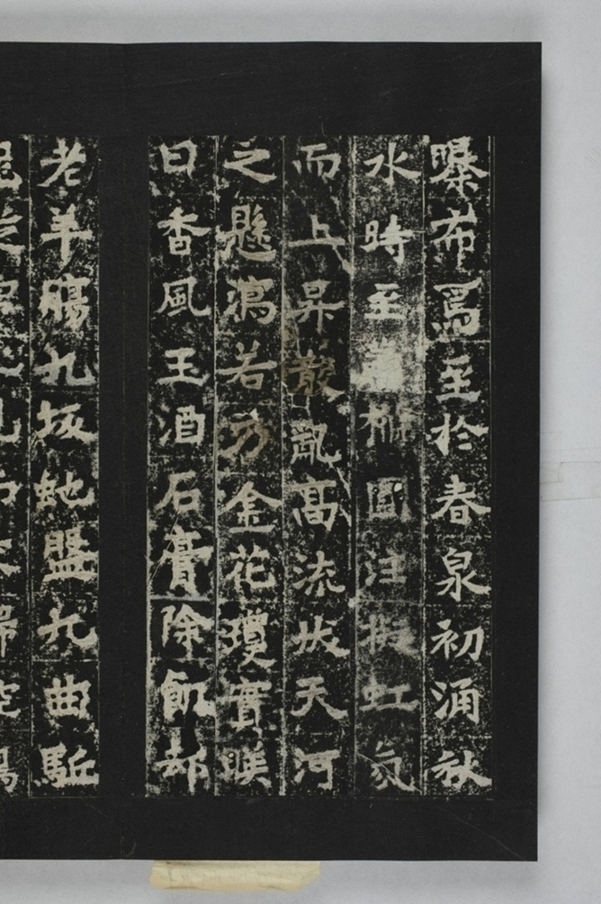 曝布焉至於春泉初涌秋
水時至圓注擬虹氛
而上杲散亂高流状天河
之懸瀉若乃金花瓊實暎
日香風玉酒石膏除飢却
老羊腸九坂虵盟九曲駈